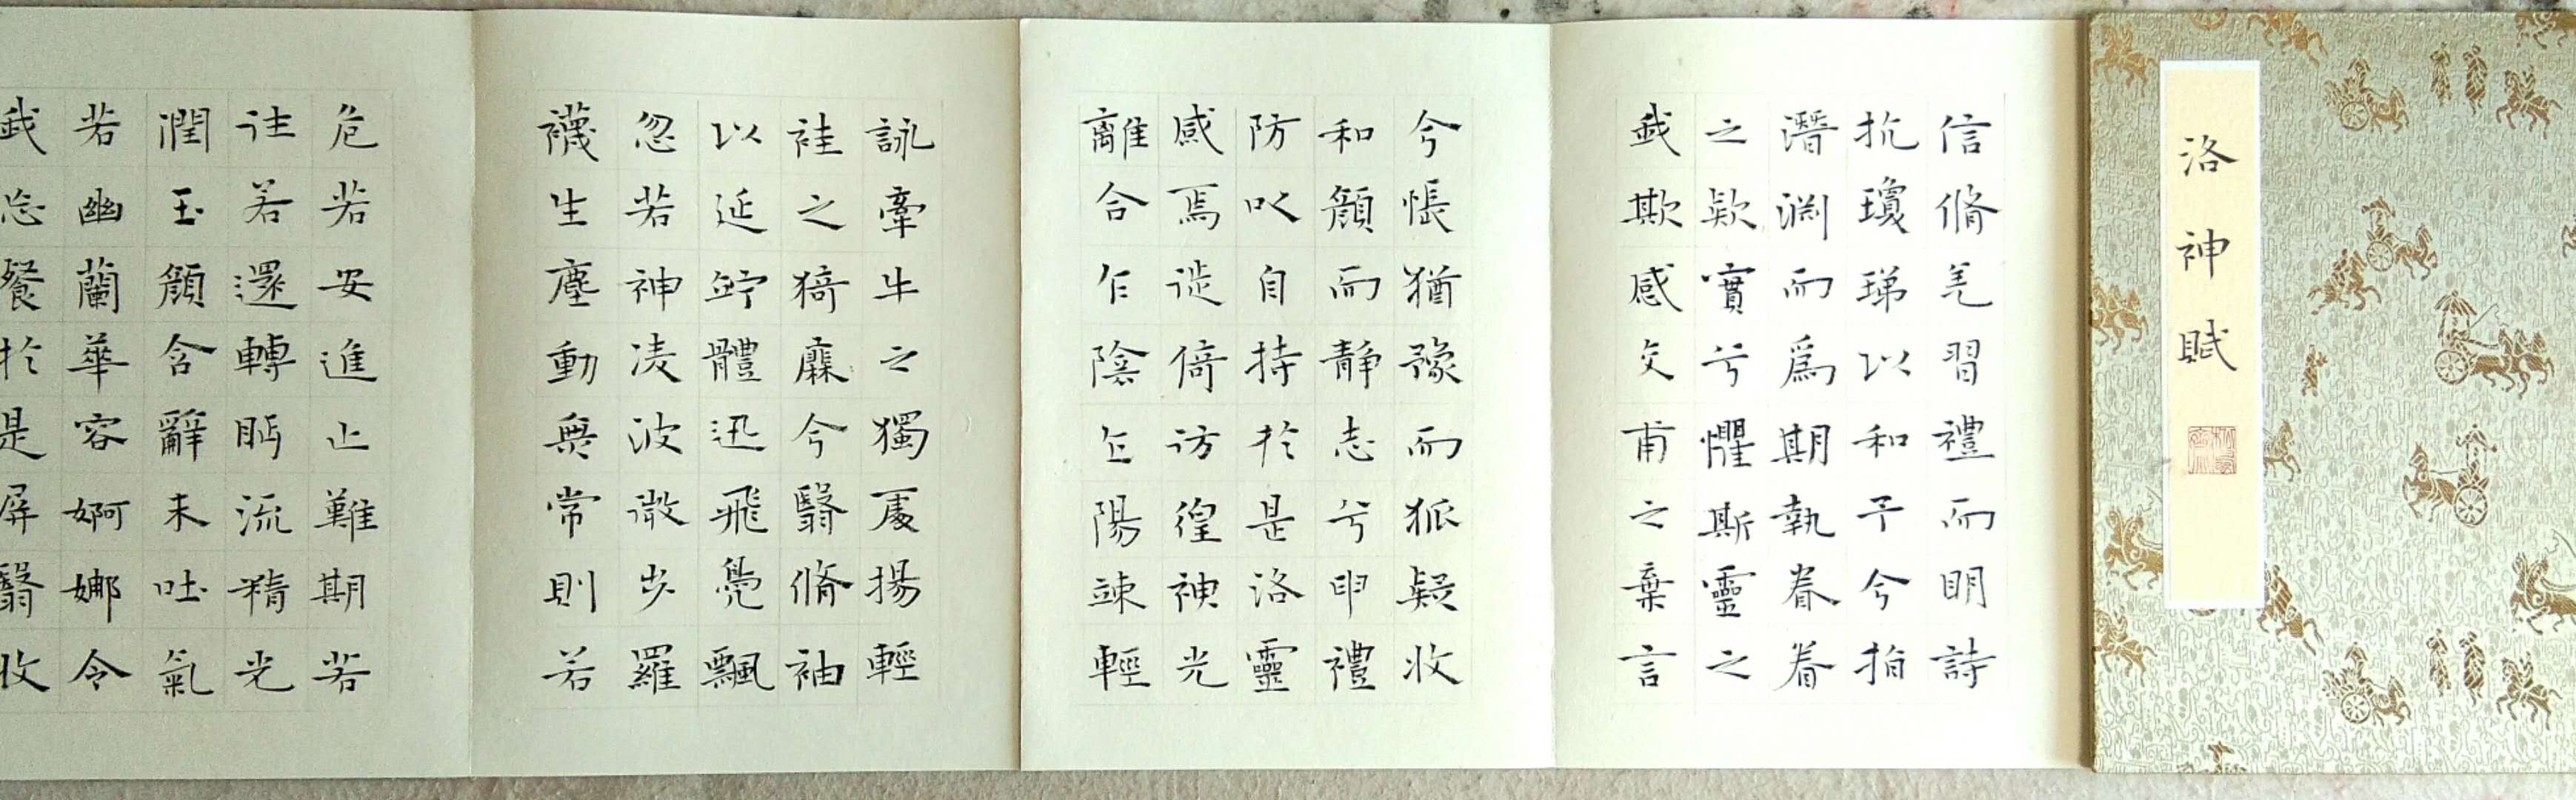 洛神賦
信脩羌習禮而明詩
抗瓊珶以和予兮指
潛淵而為期執眷眷
之款實兮懼斯靈之
我欺感交甫之棄言
兮悵猶豫而狐疑收
和顏而靜志兮申禮
防以自持於是洛靈
感焉徙倚彷徨神光
離合乍陰乍陽竦輕
詠牽牛之獨處揚輕
袿之猗靡兮翳脩袖
以延竚體迅飛鳧飄
忽若神凌波微步羅
襪生塵動無常則若
危若安進止難期若
往若還轉眄流精光
潤玉顏含辭未吐氣
若幽蘭華容婀娜令
我忘餐於是屏翳收